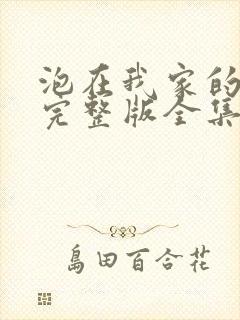 泡在我家的
完整版全集
島田百合花